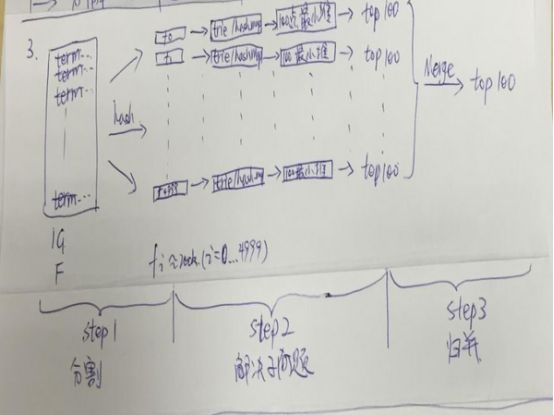 3.
term...
term...
term...
term...
hash
f0 trie/hashmap 100点最小堆 top100
f1 trie/hashmap 100最小堆 top100
f4999 trie/hashmap 100最小堆 top100
Merge top100
1G
F
fi≈200k (i=0...4999)
step1 step2 step3
分割 解决子问题 归并